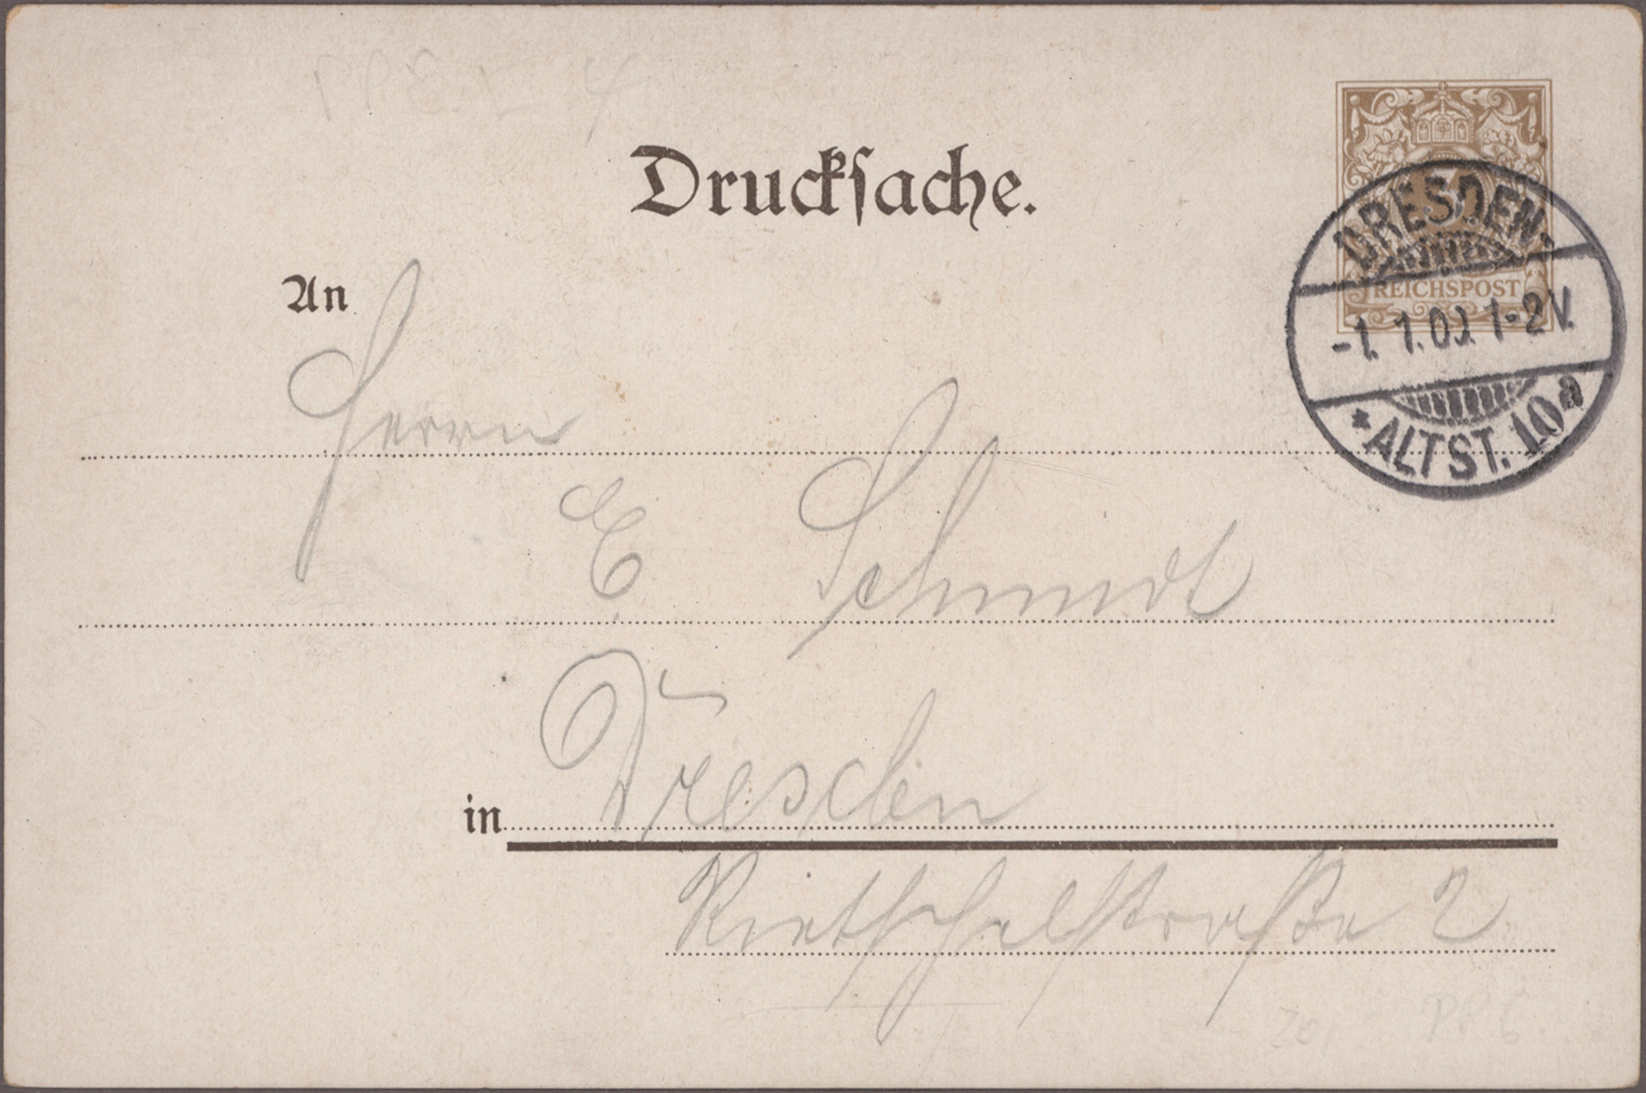 Drucksache.
3
REICHSPOST
DRESDEN-
-1. 1.00. 1-2V.
* ALTST. 10a
An
Herrn
E. Schmidt
in Dresden
Rietschelstraße 2
PP 6